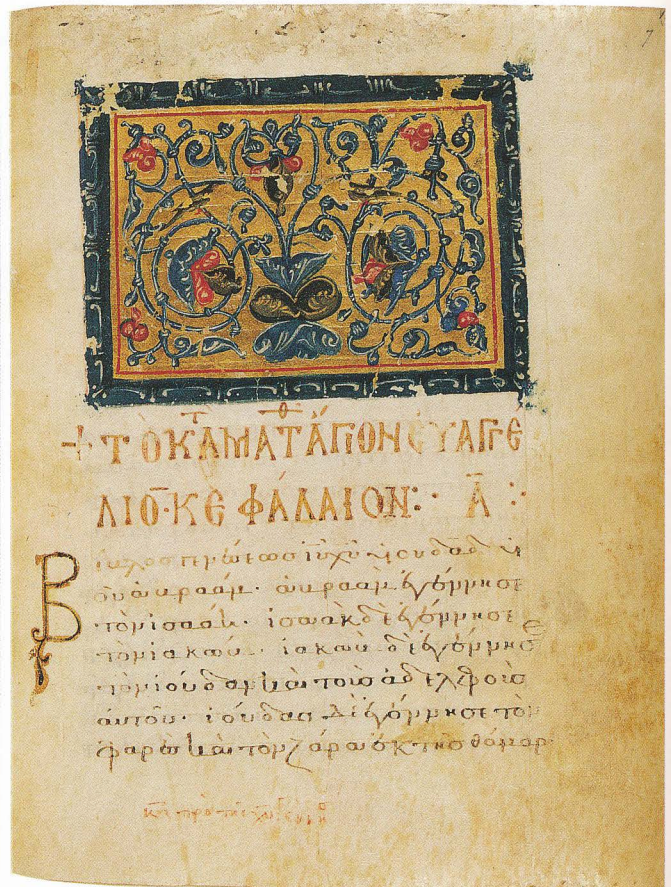 7
+ ΤῸ ΚΑΤ ΜΑΤΘ ἍΓΙΟΝ ΕΥΑΓΓΕ
ΛΙΟ̄· ΚΕΦΆΛΑΙΟΝ: Ᾱ:
Βίβλος γενέσεως ἰ̅υ̅ χ̅υ̅ υἱοῦ δ̅α̅δ̅ υἱ
οῦ ἀβραάμ· ἀβραὰμ ἐγέννησε
τὸν ἰσαάκ· ἰσαὰκ δὲ ἐγέννησε
τὸν ἰακώβ· ἰακὼβ δὲ ἐγέννησε
τὸν ἰούδαν καὶ τοὺς ἀδελφοὺς
αὐτοῦ· ἰούδας δὲ ἐγέννησε τὸν
φαρὲς καὶ τὸν ζαρὰ ἐκ τῆς θάμαρ·
πρὸ τῆς